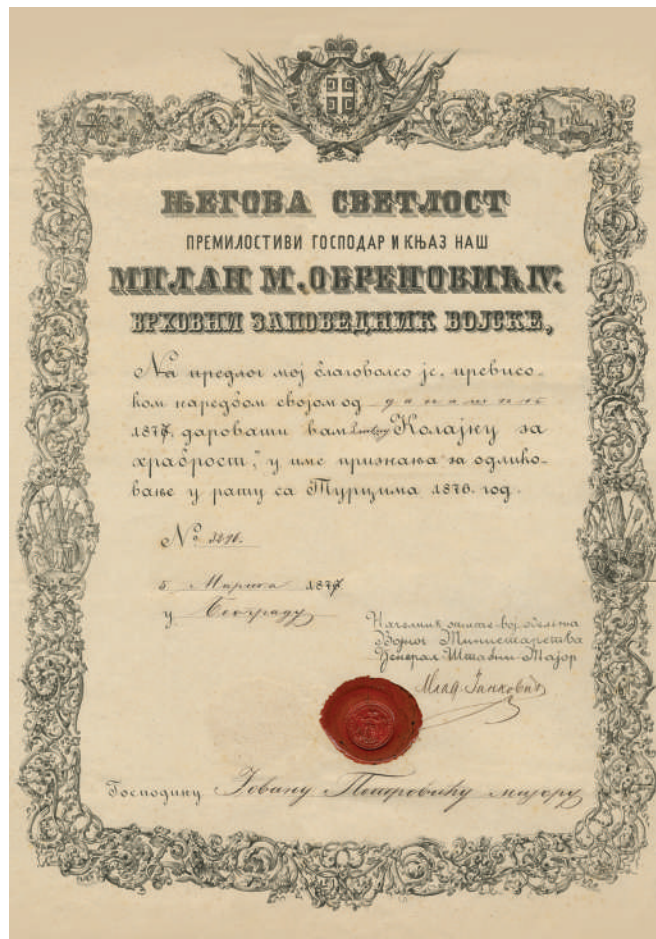 ЊЕГОВА СВЕТЛОСТ
ПРЕМИЛОСТИВИ ГОСПОДАР И КЊАЗ НАШ
МИЛАН М. ОБРЕНОВИЋ IV.
ВРХОВНИ ЗАПОВЕДНИК ВОЈСКЕ,
На предлог мој благоволео је, превисо-
ком наредбом својом од
1877. даровати вам Колајну за
храброст," у име признања за одлико-
вање у рату са Турцима 1876. год.
№
5 Марта 1877
у Београду
Началник општ-вој. оделења
Војног Министарства
Ђенерал Штабни Мајор
Млад. Јанковић
Господину Јовану Петровићу мајору